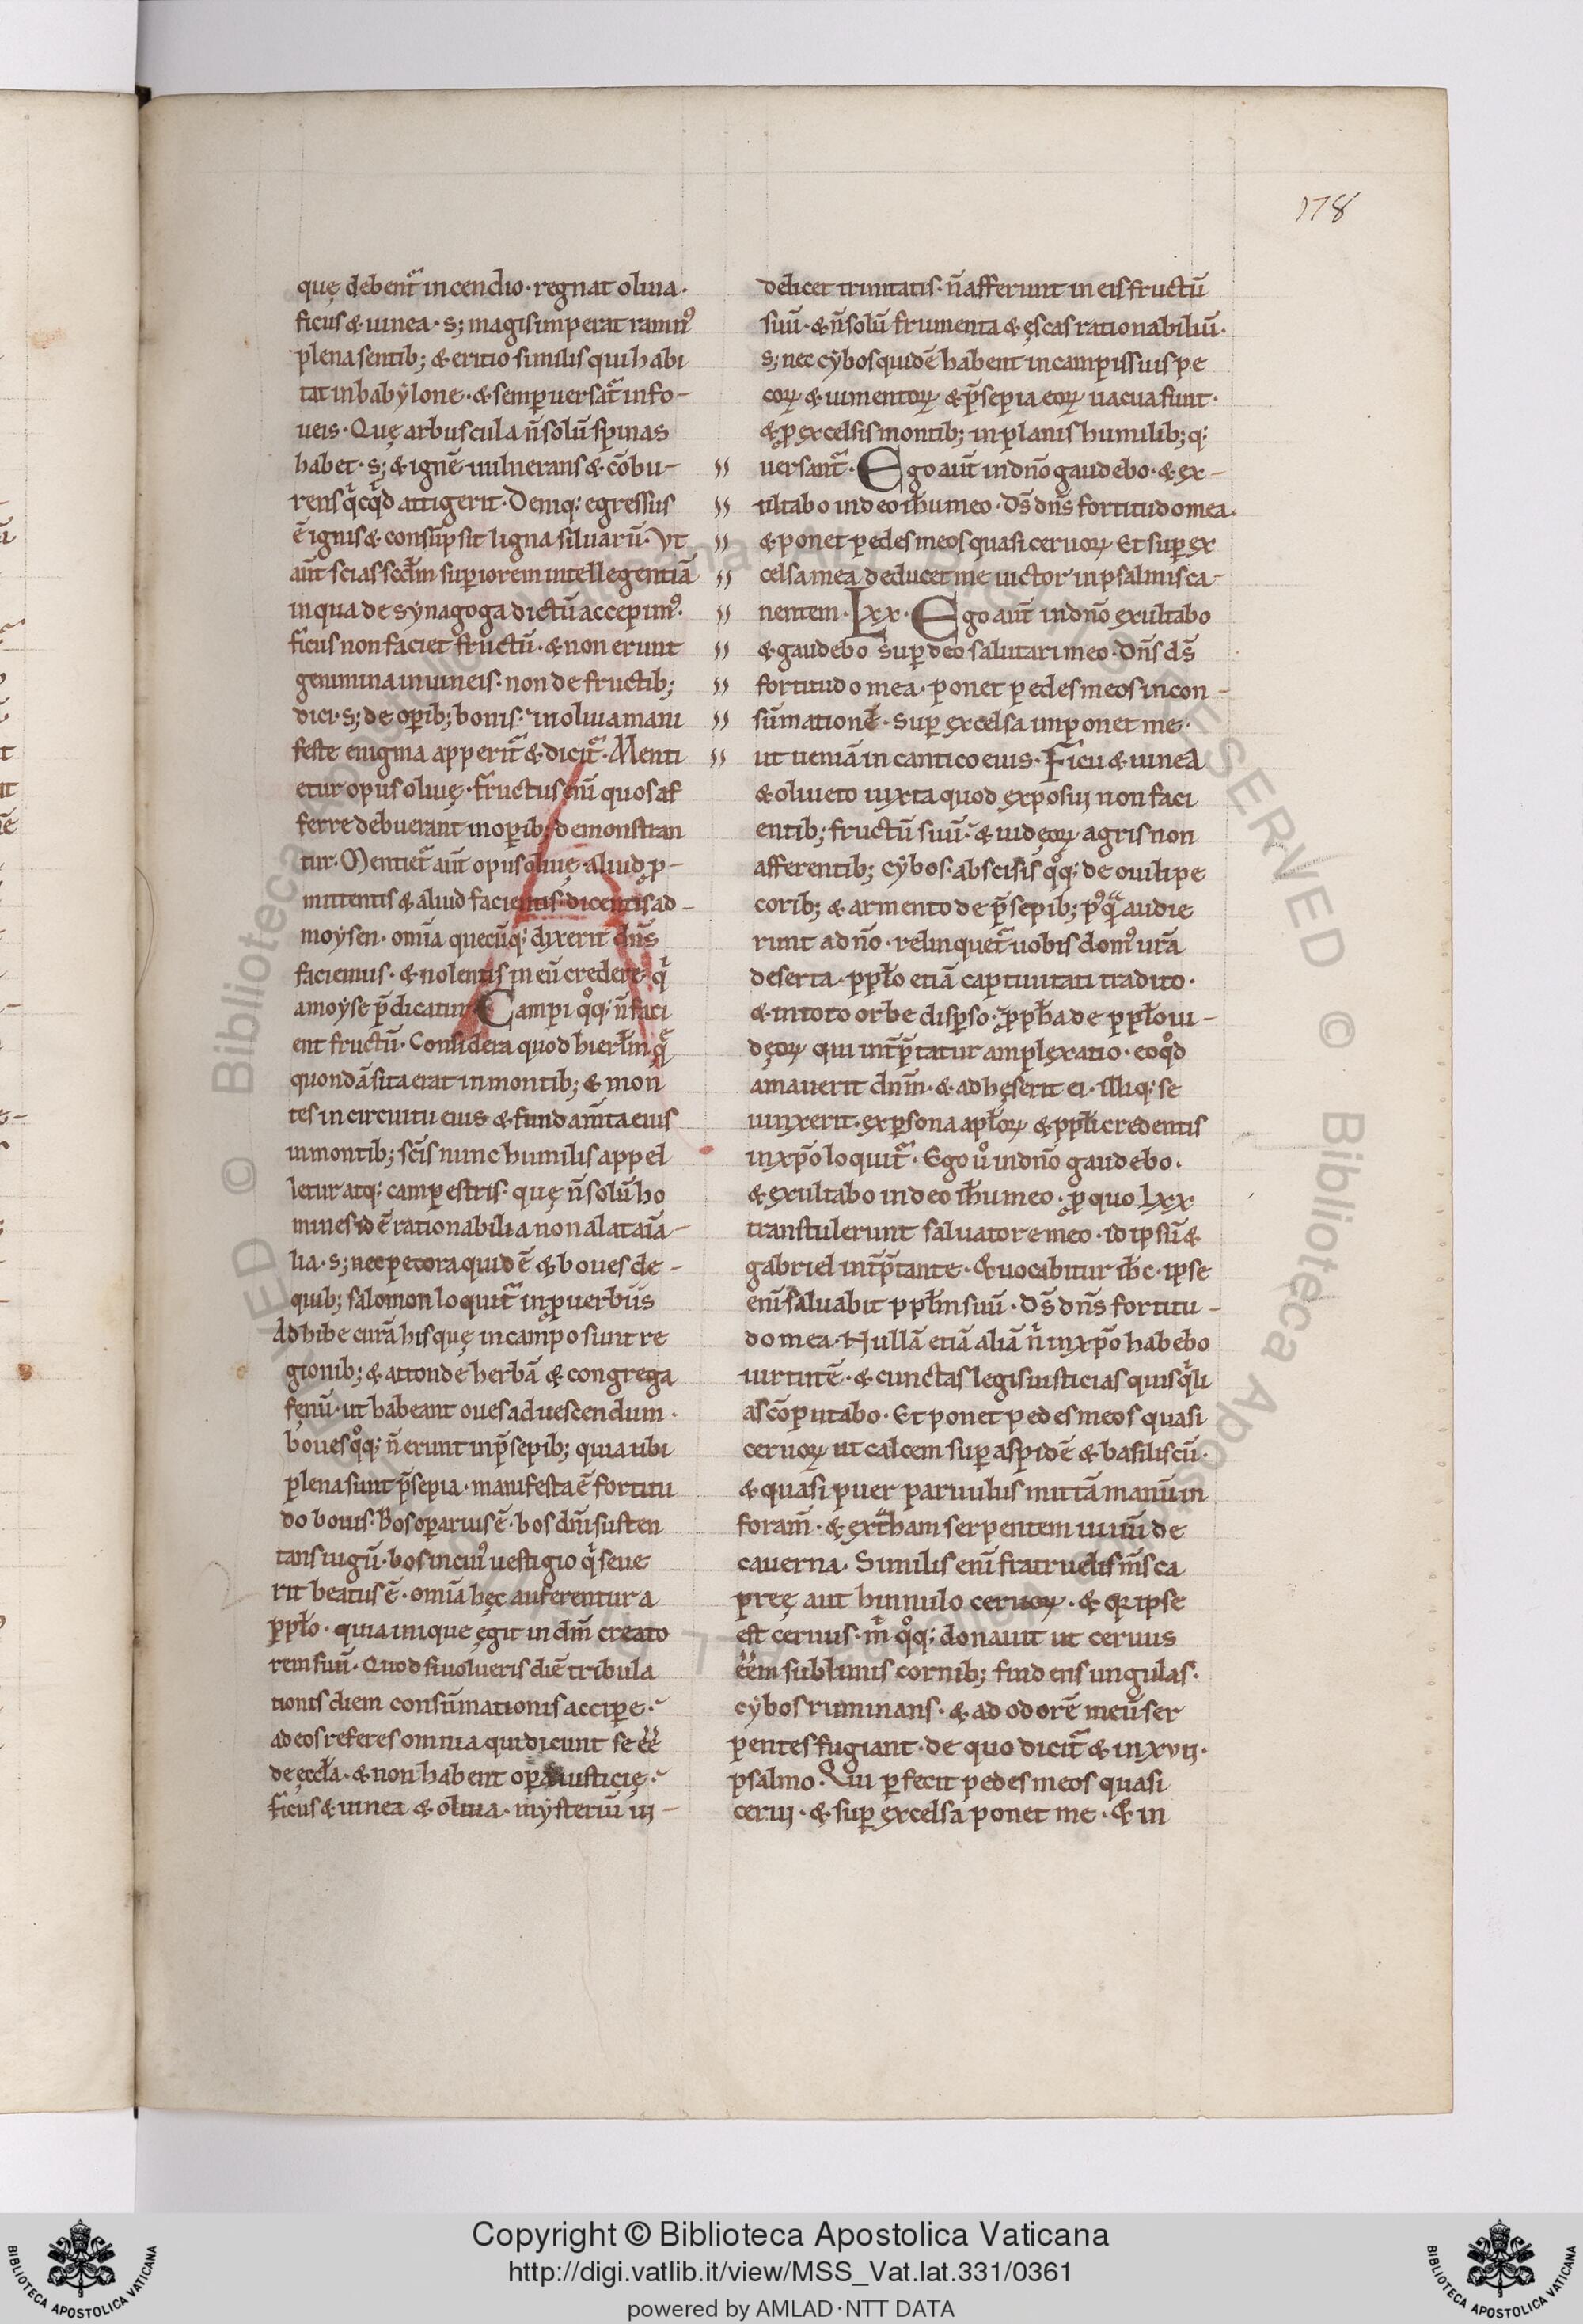 178
quę debent᷑ incendio· regnat oliua·
ficus & uinea· s; magis imperat ramn᷒
plena sentib; & eritio similis qui habi
tat in babẏlone· & semꝑ uersat᷑ in fo-
ueis· Quę arbuscula ñ solū spinas
habet· s; & ignē uulnerans & cōbu-
rens qͥcqͥd attigerit· Deniq; egressus
ē ignis & consūpsit ligna siluarū· Vt
aūt scias scd̄m suꝑiorem intellegentiā
in qua de sẏnagoga dictū accepim᷒·
ficus non faciet fructū· & non erunt
genimina in uineis· non de fructib;
dici· s; de oꝑib; bonis· in oliua mani
feste enigma apperit᷑ & dicit᷑· Menti
etur opus oliuę· fructus eni᷑ quos af
ferre debuerant in oꝑib; demonstran
tur· Mentiet᷑ aūt opus oliuę aliud ꝓ-
mittentis & aliud facientis· dicentis ad-
moẏsen· om̄ia quecūq; dixerit dn̄s
faciemus· & nolentis in eū credere qͥ
a moẏse p̄dicatur· Campi qͦq; ñ faci
ent fructū· Considera quod hierłm qᷓ
quondā sita erat in montib; & mon
tes in circuitu eius & fundam̄ta eius
in montib; scīs nunc humilis appel
letur atq; campestris· quę ñ solū ho
mines idē rationabilia non alat aīa-
lia· s; nec pecora quidē & boues de-
quib; salomon loquit᷑ in ꝓuerbiis
Adhibe curā his quę in campo sunt re
gionib; & attonde herbā & congrega
fęnū· ut habeant oues ad uescendum·
boues qͦq; ñ erunt in p̄sepib; quia ubi
plena sunt p̄sepia· manifesta ē fortitu
do bouis· Bos oꝑarius ē· bos dn̄i susten
tans iugū· bos in cui᷒ uestigio qͥ seue
rit beatus ē· om̄ia hęc auferentur a
ppło· quia inique ęgit in dm̄ creato
rem suū· Quod si uolueris diē tribula
tionis diem consūmationis accipe·
ad eos referes omnia qui dicunt se ēē
de ęccła· & non habent oꝑa iusticię·
ficus & uinea & oliua· mẏsteriū ui-
delicet trinitatis· ñ afferunt in eis fructū
suū· & ñ solū frumenta & ęscas rationabiliū·
s; nec cẏbos quidē habent in campis suis pe
coꝝ & iumentoꝝ & p̄sepia eoꝝ uacua sunt·
& ꝓ excelsis montib; in planis humilib; q;
uersant᷑· Ego aūt in dn̄o gaudebo· & ex-
ultabo in deo ih̄u meo· Ds̄ dn̄s fortitudo mea·
& ponet pedes meos quasi ceruoꝝ Et suꝑ ex
celsa mea deducet me uictor in psalmis ca-
nentem· Lxx· Ego aūt in dn̄o exultabo
& gaudebo suꝑ deo salutari meo· Dn̄s ds̄
fortitudo mea· ponet pedes meos in con-
sūmationē· Suꝑ excelsa imponet me·
ut ueniā in cantico eius· Ficu & uinea
& oliueto iuxta quod exposui non faci
entib; fructū suū· & iudęoꝝ agris non
afferentib; cẏbos· abscisis qͦq; de ouili pe
corib; & armento de p̄sepib; p᷒qᷓ audie
runt a dn̄o· relinquet᷑ uobis dom᷒ ur̄a
deserta· ppło etiā captiuitati tradito·
& in toto orbe disꝑso· ꝓph̄a de ppło iu-
dęoꝝ qui int̄p̄tatur amplexatio· eo qͦd
amauerit dnm̄· & adhęserit ei· illiq; se
iunxerit· ex ꝑsona apłoꝝ & ppłi credentis
in xp̄o loquit᷑· Ego uͦ in dn̄o gaudebo·
& exultabo in deo ih̄u meo· ꝓ quo Lxx
transtulerunt saluatore meo· id ipsū &
gabriel int̄p̄tante· & uocabitur ih̄c· ipse
eni᷑ saluabit ppłm suū· Ds̄ dn̄s fortitu-
do mea· Nullā etiā aliā nͥ in xp̄o habebo
uirtutē· & cunctas legis iusticias quisqͥli
as cōputabo· Et ponet pedes meos quasi
ceruoꝝ ut calcem suꝑ aspidē & basiliscū·
& quasi puer paruulus mittā manū in
foram̄· & ext᷑ham serpentem uiuū de
cauerna· Similis eni᷑ fratruelis m̄s ca
preę aut hinnulo ceruoꝝ· & qꝛ ipse
est ceruus· mͥ qͦq; donauit ut ceruus
ēēm sublimis cornib; findens ungulas·
cẏbos ruminans· & ad odorē meū ser
pentes fugiant· de quo dicit᷑ & in xvij·
psalmo· Qui ꝑfecit pedes meos quasi
cerui· & suꝑ excelsa ponet me· & in
Copyright © Biblioteca Apostolica Vaticana
http://digi.vatlib.it/view/MSS_Vat.lat.331/0361
powered by AMLAD·NTT DATA
BIBLIOTECA APOSTOLICA VATICANA
BIBLIOTECA APOSTOLICA VATICANA